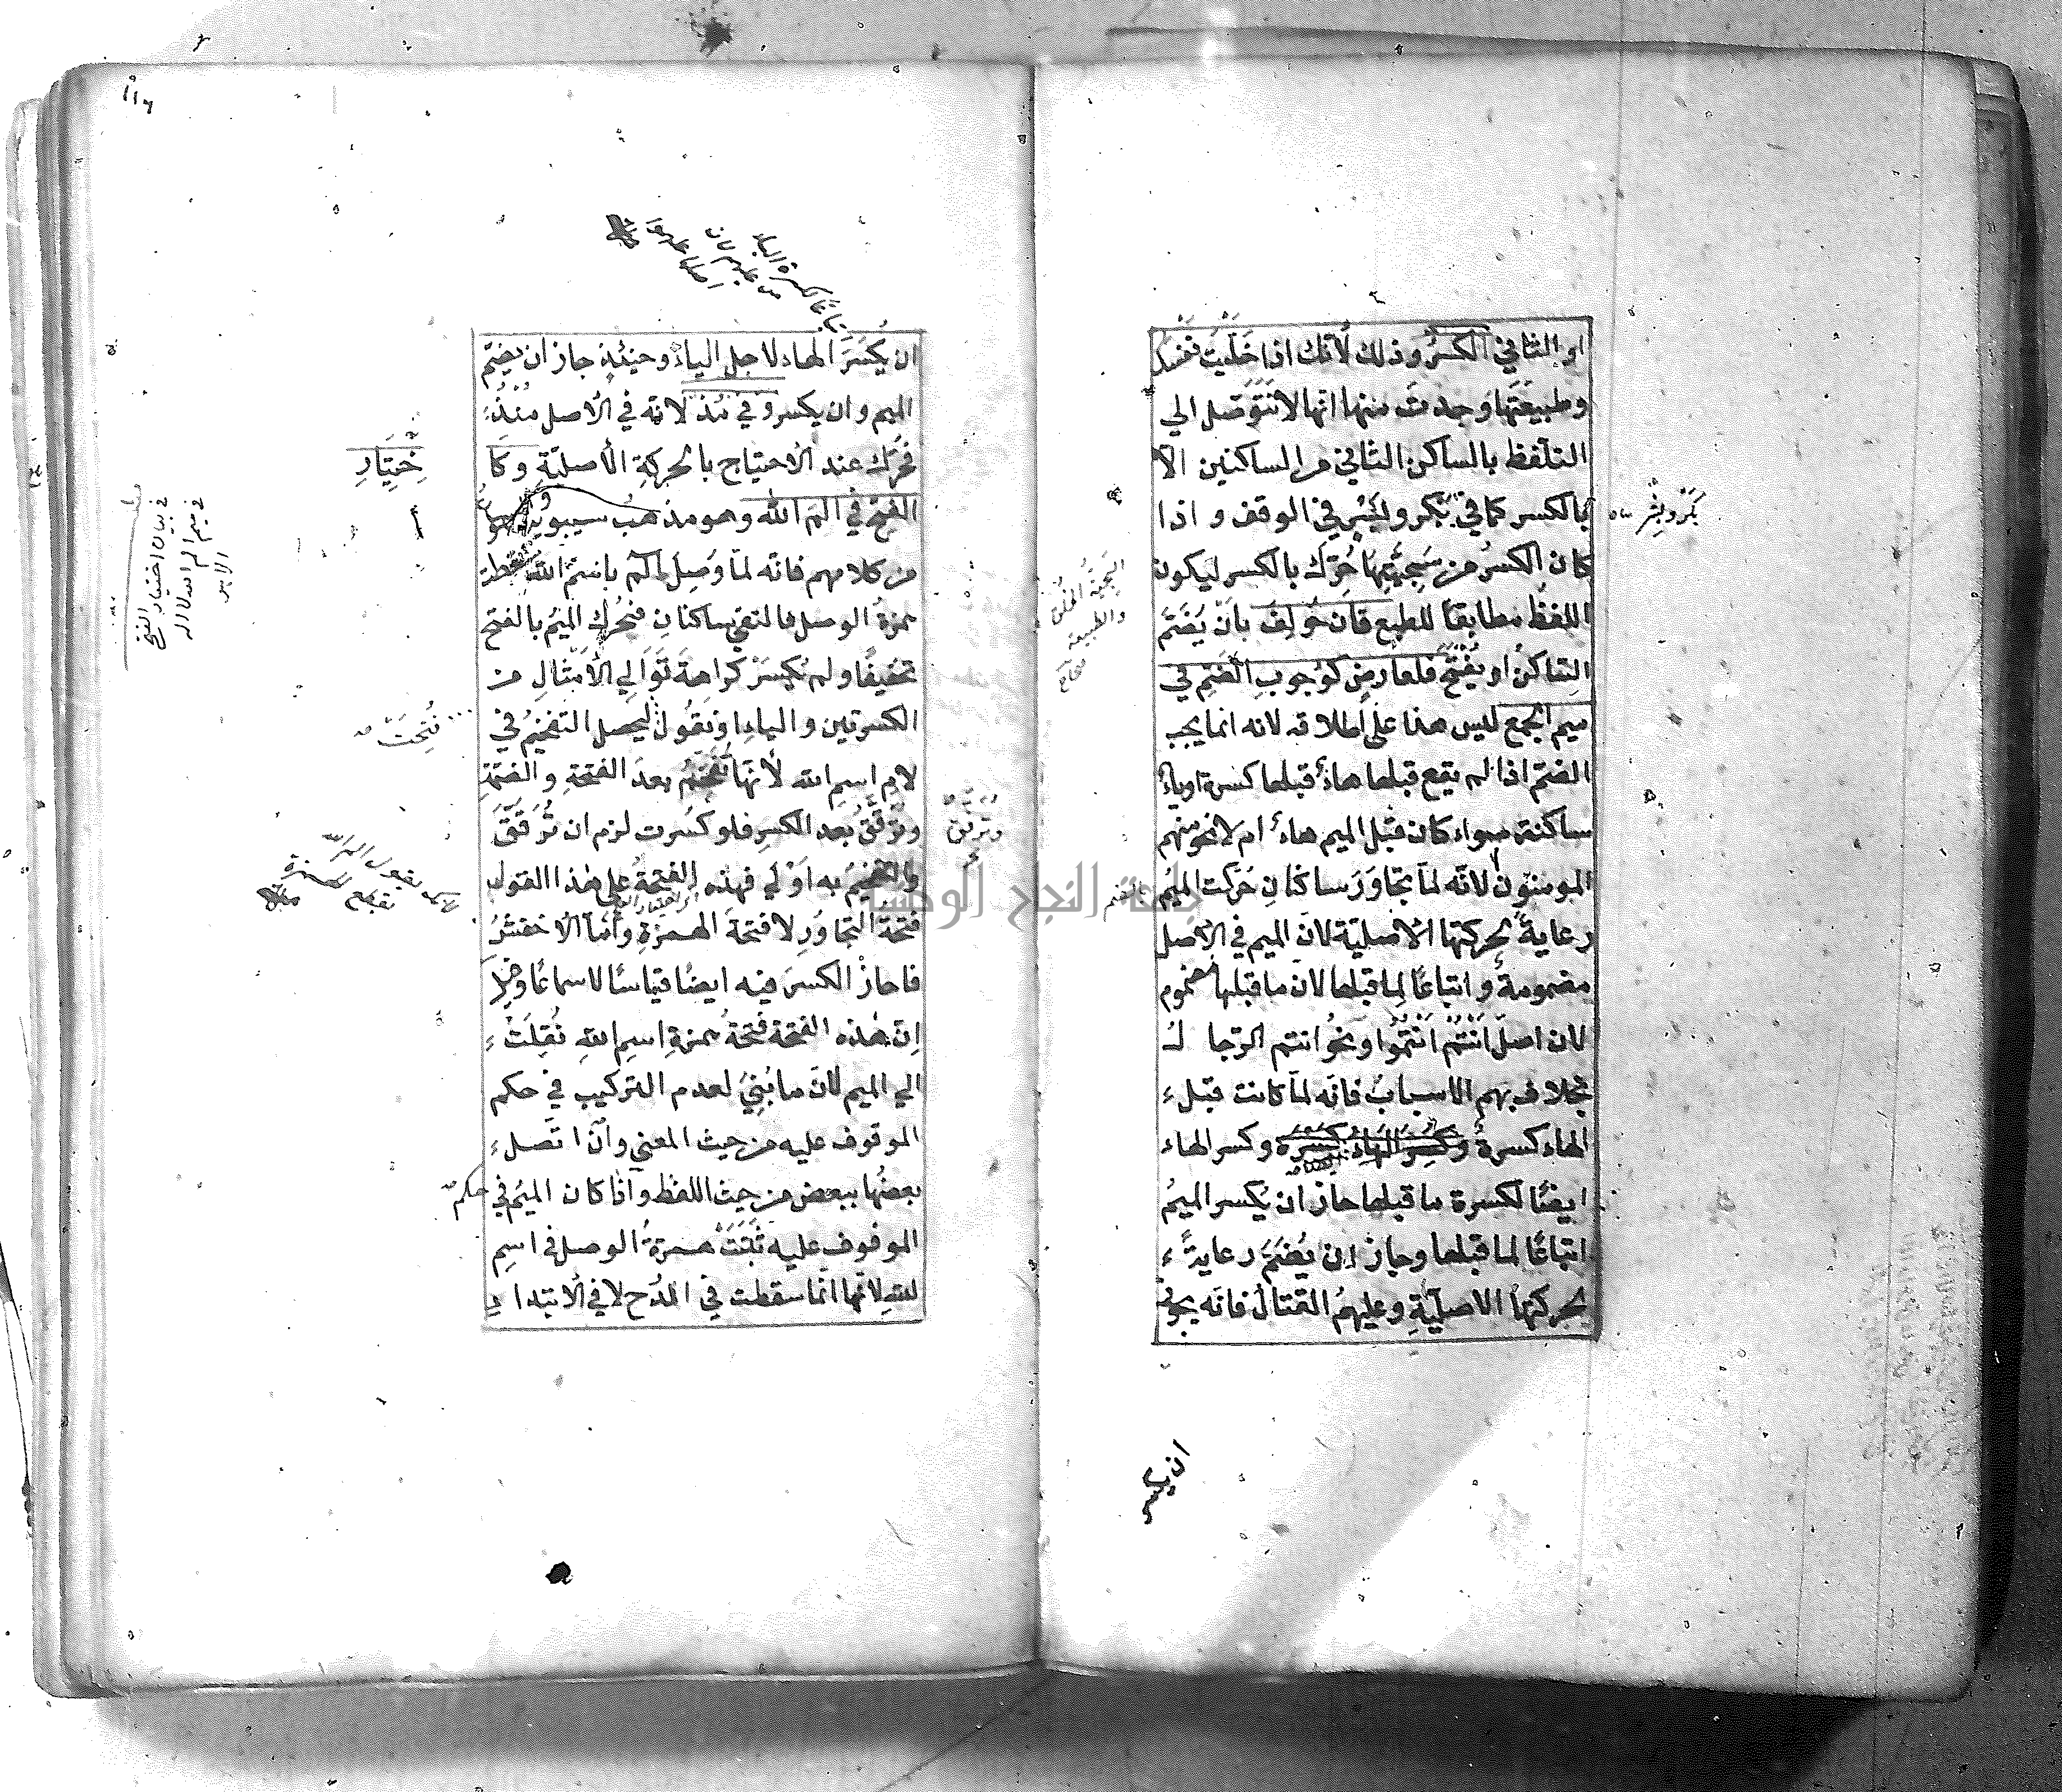 او الثاني الكسرُ وذلك لأنّك اذا خَلّيْت نَفْسَكَ
وطبيعَتَها وجدتَ منها انها لا تَتَوَصّل الي
التلفظ بالساكن الثاني من الساكنين الّا
بالكسر كما في بَكْر و بِشْر في الوقف و اذا
بَكْر وبِشْر
كان الكسرُ من سَجِيَّتِها حُرّك بالكسر ليكون
السَجيّة الخُلق
والطبيعة
صحاح
اللفظُ مطابقًا للطبع فان خُولِفَ بان يُضَمَّ
الساكنُ او يُفْتَحَ فلعارضٍ كوُجوبِ الضَمِّ في
ميم الجمع ليس هذا على اطلاقه لانه انما يجب
الضم اذا لم يقع قبلها هاءٌ قبلها كسرة او ياءٌ
ساكنة سواء كان قبل الميم هاءٌ ام لا نحو منهم
المومنون لانّه لمّا تجاوَرَ ساكنانِ حُرّكت الميمُ
بالضم
رعايةً لحركتها الاصليّة لانّ الميم في الاصل
مضمومةٌ و اتباعًا لِما قبلها لانّ ما قبلها مضموم
لان اصل اَنْتُمْ اَنْتُمُوا و نحوُ انتم الرّجال
بخلاف بهم الاسبابُ فانّه لمّا كانت قبل
الهاء كسرةٌ وكُسِرَ الهاءُ كسرة وكسر الهاء
ايضًا لكسرة ما قبلها جاز ان يُكسر الميمُ
اتباعًا لما قبلها وجاز ان يُضَمَّ رعايةً
لحركتها الاصليّةِ وعليهمُ القتالُ فانّه يجوز
ان يكسر
١١٦
ان يُكْسَرَ الهاء لاجل الياء وحينئذٍ جاز ان يضمّ
الميم وان يكسر وفي مُذْ لانّه في الاصل مُنْذُ
فحُرّك عند الاحتياج بالحركةِ الأصليّةِ وكا
خْتِيَارِ
الفتح في الم اللّه وهو مذهبُ سيبويه
من كلامهم فانّه لمّا وُصِلَ الم باسمِ اللّه سقطت
همزةُ الوصل فالتقي ساكنان فحُرّك الميمُ بالفتح
في بيان اختيار الفتح
في ميم الم الله لا اله
الا هو
تخفيفًا ولم يُكْسَرْ كراهةَ تَوَالِي الأمْثالِ من
الكسرتين والياء او نقُولُ ليحصل التفخيمُ في
فُتِحَتْ
لامِ اسمِ الله لأنّها تُفَخَّمُ بعدَ الفتحةِ والضمّةِ
وتُرَقَّقُ بعد الكسرِ فلو كُسرت لزم ان تُرَقَّقَ
وتُرَقَّقُ
والتفخيمُ به اَوْلَي فهذه الفتحةُ علي هذا القول
فتحةُ التجاوُرِ لا فتحةَ الهمزةِ وأمّا الاخفشُ
فاجازَ الكسرَ فيه ايضًا قياسًا لا سماعًا وقيل
اِنّ هذه الفتحة فتحةُ همزةِ اسمِ اللهِ نُقِلَتْ
الي الميم لانّ ما بُنِيَ لعدم التركيب في حكم
الموقوف عليه من حيث المعني وانْ اتّصل
بعضُها ببعضٍ من حيث اللفظ واذا كان الميمُ في
حكم
الموقوف عليه ثَبَتَتْ همزةُ الوصل في اسمِ
اللهِ لانّها انّما سقطت في الدّرْج لا في الابتداءِ
جامعة النجاح الوطنية